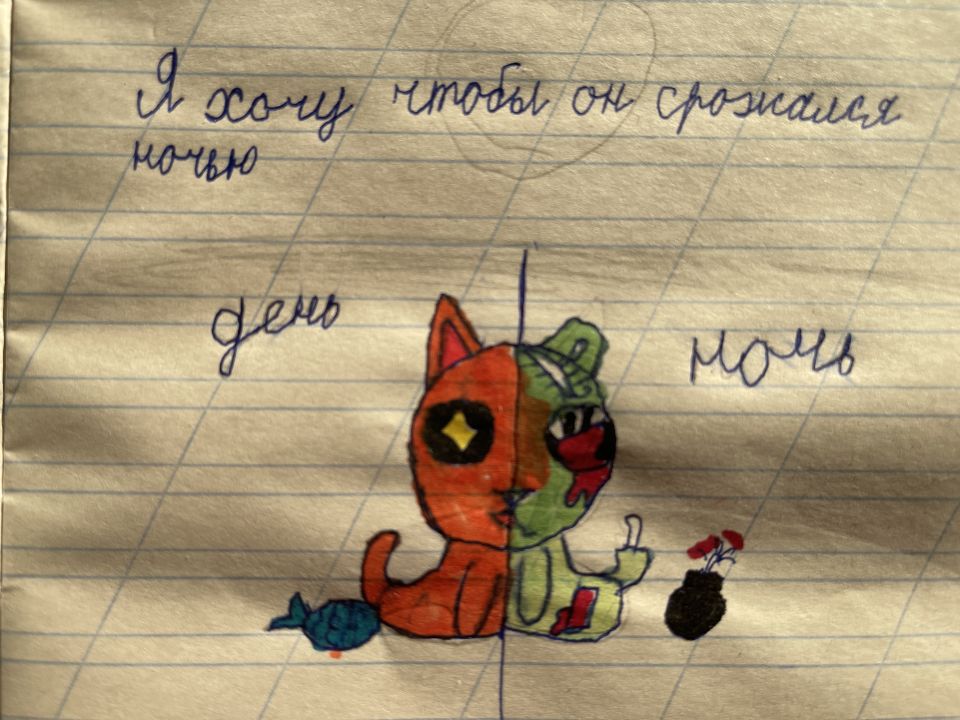 Я хочу чтобы он срожался
ночью
день
ночь